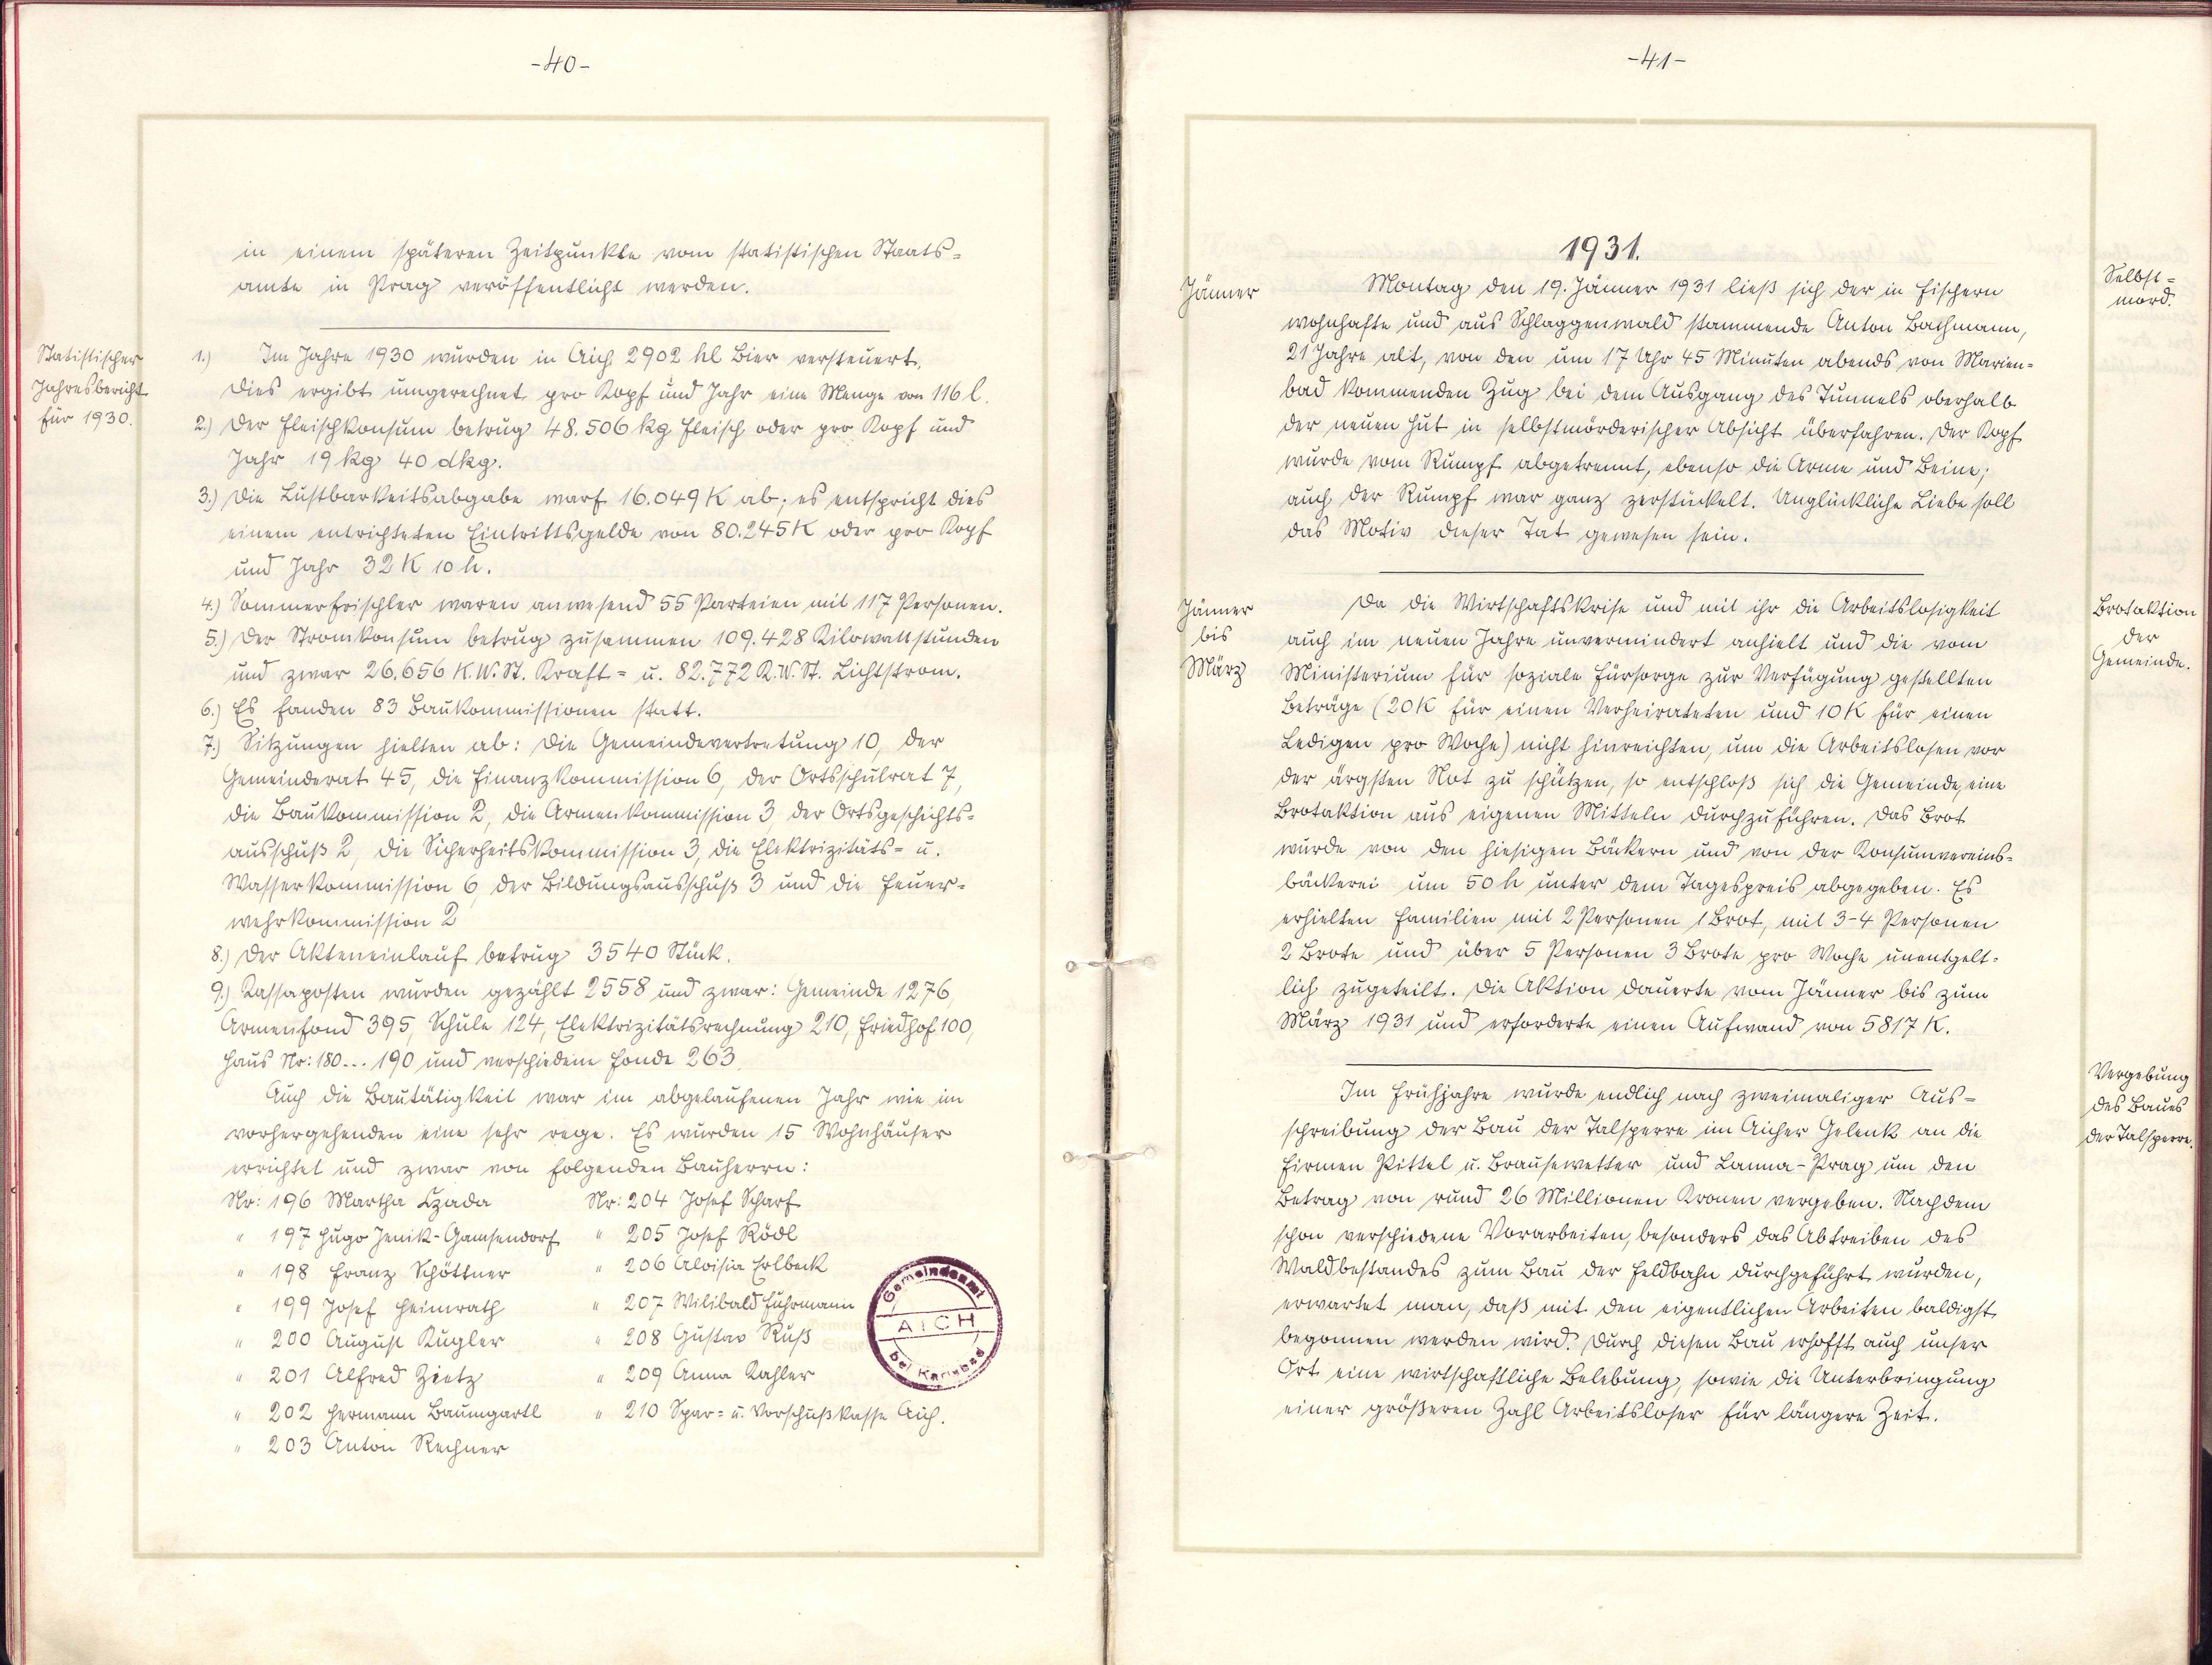 -40-
in einem späteren Zeitpunkte vom statistischen Staats=
amte in Prag veröffentlicht werden.
Statistischer
Jahresbericht
für 1930.
1.) Im Jahre 1930 wurden in Aich 2902 hl Bier versteuert.
Dies ergibt umgerechnet pro Kopf und Jahr eine Menge von 116 l.
2.) Der Fleischkonsum betrug 48.506 kg Fleisch oder pro Kopf und
Jahr 19 kg 40 dkg.
3.) Die Lustbarkeitsabgabe warf 16.049 K ab; es entspricht dies
einem entrichteten Eintrittsgelde von 80.245 K oder pro Kopf
und Jahr 32 K 10 h.
4.) Sommerfrischler waren anwesend 55 Parteien mit 117 Personen.
5.) Der Stromkonsum betrug zusammen 109.428 Kilowattstunden
und zwar 26.656 K.W.St. Kraft= u. 82.772 K.W.St. Lichtstrom.
6.) Es fanden 83 Baukommissionen statt.
7.) Sitzungen hielten ab: Die Gemeindevertretung 10, der
Gemeinderat 45, die Finanzkommission 6, der Ortsschulrat 7,
die Baukommission 2, die Armenkommission 3, der Ortsgeschichts=
ausschuß 2, die Sicherheitskommission 3, die Elektrizitäts= u.
Wasserkommission 6, der Bildungsausschuß 3 und die Feuer=
wehrkommission 2
8.) Der Akteneinlauf betrug 3540 Stück.
9.) Kassaposten wurden gezählt 2558 und zwar: Gemeinde 1276,
Armenfond 395, Schule 124, Elektrizitätsrechnung 210, Friedhof 100,
Haus Nr: 180... 190 und verschiedene Fonde 263.
Auch die Bautätigkeit war im abgelaufenen Jahr wie im
vorhergehenden eine sehr rege. Es wurden 15 Wohnhäuser
errichtet und zwar von folgenden Bauherrn:
Nr: 196 Martha Czada
" 197 Hugo Jenik-Gamsendorf
" 198 Franz Schöttner
" 199 Josef Heimrath
" 200 August Kugler
" 201 Alfred Zietz
" 202 Hermann Baumgartl
" 203 Anton Rechner
Nr: 204 Josef Scharf
" 205 Josef Rödl
" 206 Aloisia Erlbeck
" 207 Wilibald Fuhrmann
" 208 Gustav Ruß
" 209 Anna Kahler
" 210 Spar= u. Vorschußkasse Aich.
Gemeindeamt
AICH
bei Karlsbad
-41-
1931.
Jänner
Selbst=
mord.
Montag den 19. Jänner 1931 ließ sich der in Fischern
wohnhafte und aus Schlaggenwald stammende Anton Bachmann,
21 Jahre alt, von den um 17 Uhr 45 Minuten abends von Marien=
bad kommenden Zug bei dem Ausgang des Tunnels oberhalb
der neuen Hut in selbstmörderischer Absicht überfahren. Der Kopf
wurde vom Rumpf abgetrennt, ebenso die Arme und Beine;
auch der Rumpf war ganz zerstückelt. Unglückliche Liebe soll
das Motiv dieser Tat gewesen sein.
Jänner
bis
März
Brotaktion
der
Gemeinde.
Da die Wirtschaftskrise und mit ihr die Arbeitslosigkeit
auch im neuen Jahre unvermindert anhielt und die vom
Ministerium für soziale Fürsorge zur Verfügung gestellten
Beträge (20 K für einen Verheirateten und 10 K für einen
Ledigen pro Woche) nicht hinreichten, um die Arbeitslosen vor
der ärgsten Not zu schützen, so entschloß sich die Gemeinde, eine
Brotaktion aus eigenen Mitteln durchzuführen. Das Brot
wurde von den hiesigen Bäckern und von der Konsumvereins=
bäckerei um 50 h unter dem Tagespreis abgegeben. Es
erhielten Familien mit 2 Personen 1 Brot, mit 3-4 Personen
2 Brote und über 5 Personen 3 Brote pro Woche unentgelt=
lich zugeteilt. Die Aktion dauerte vom Jänner bis zum
März 1931 und erforderte einen Aufwand von 5817 K.
Vergebung
des Baues
der Talsperre.
Im Frühjahre wurde endlich nach zweimaliger Aus=
schreibung der Bau der Talsperre im Aicher Gelenk an die
Firmen Pittel u. Brausewetter und Lanna-Prag um den
Betrag von rund 26 Millionen Kronen vergeben. Nachdem
schon verschiedene Vorarbeiten, besonders das Abtreiben des
Waldbestandes zum Bau der Feldbahn durchgeführt wurden,
erwartet man, daß mit den eigentlichen Arbeiten baldigst
begonnen werden wird. Durch diesen Bau erhofft auch unser
Ort eine wirtschaftliche Belebung, sowie die Unterbringung
einer größeren Zahl Arbeitsloser für längere Zeit.